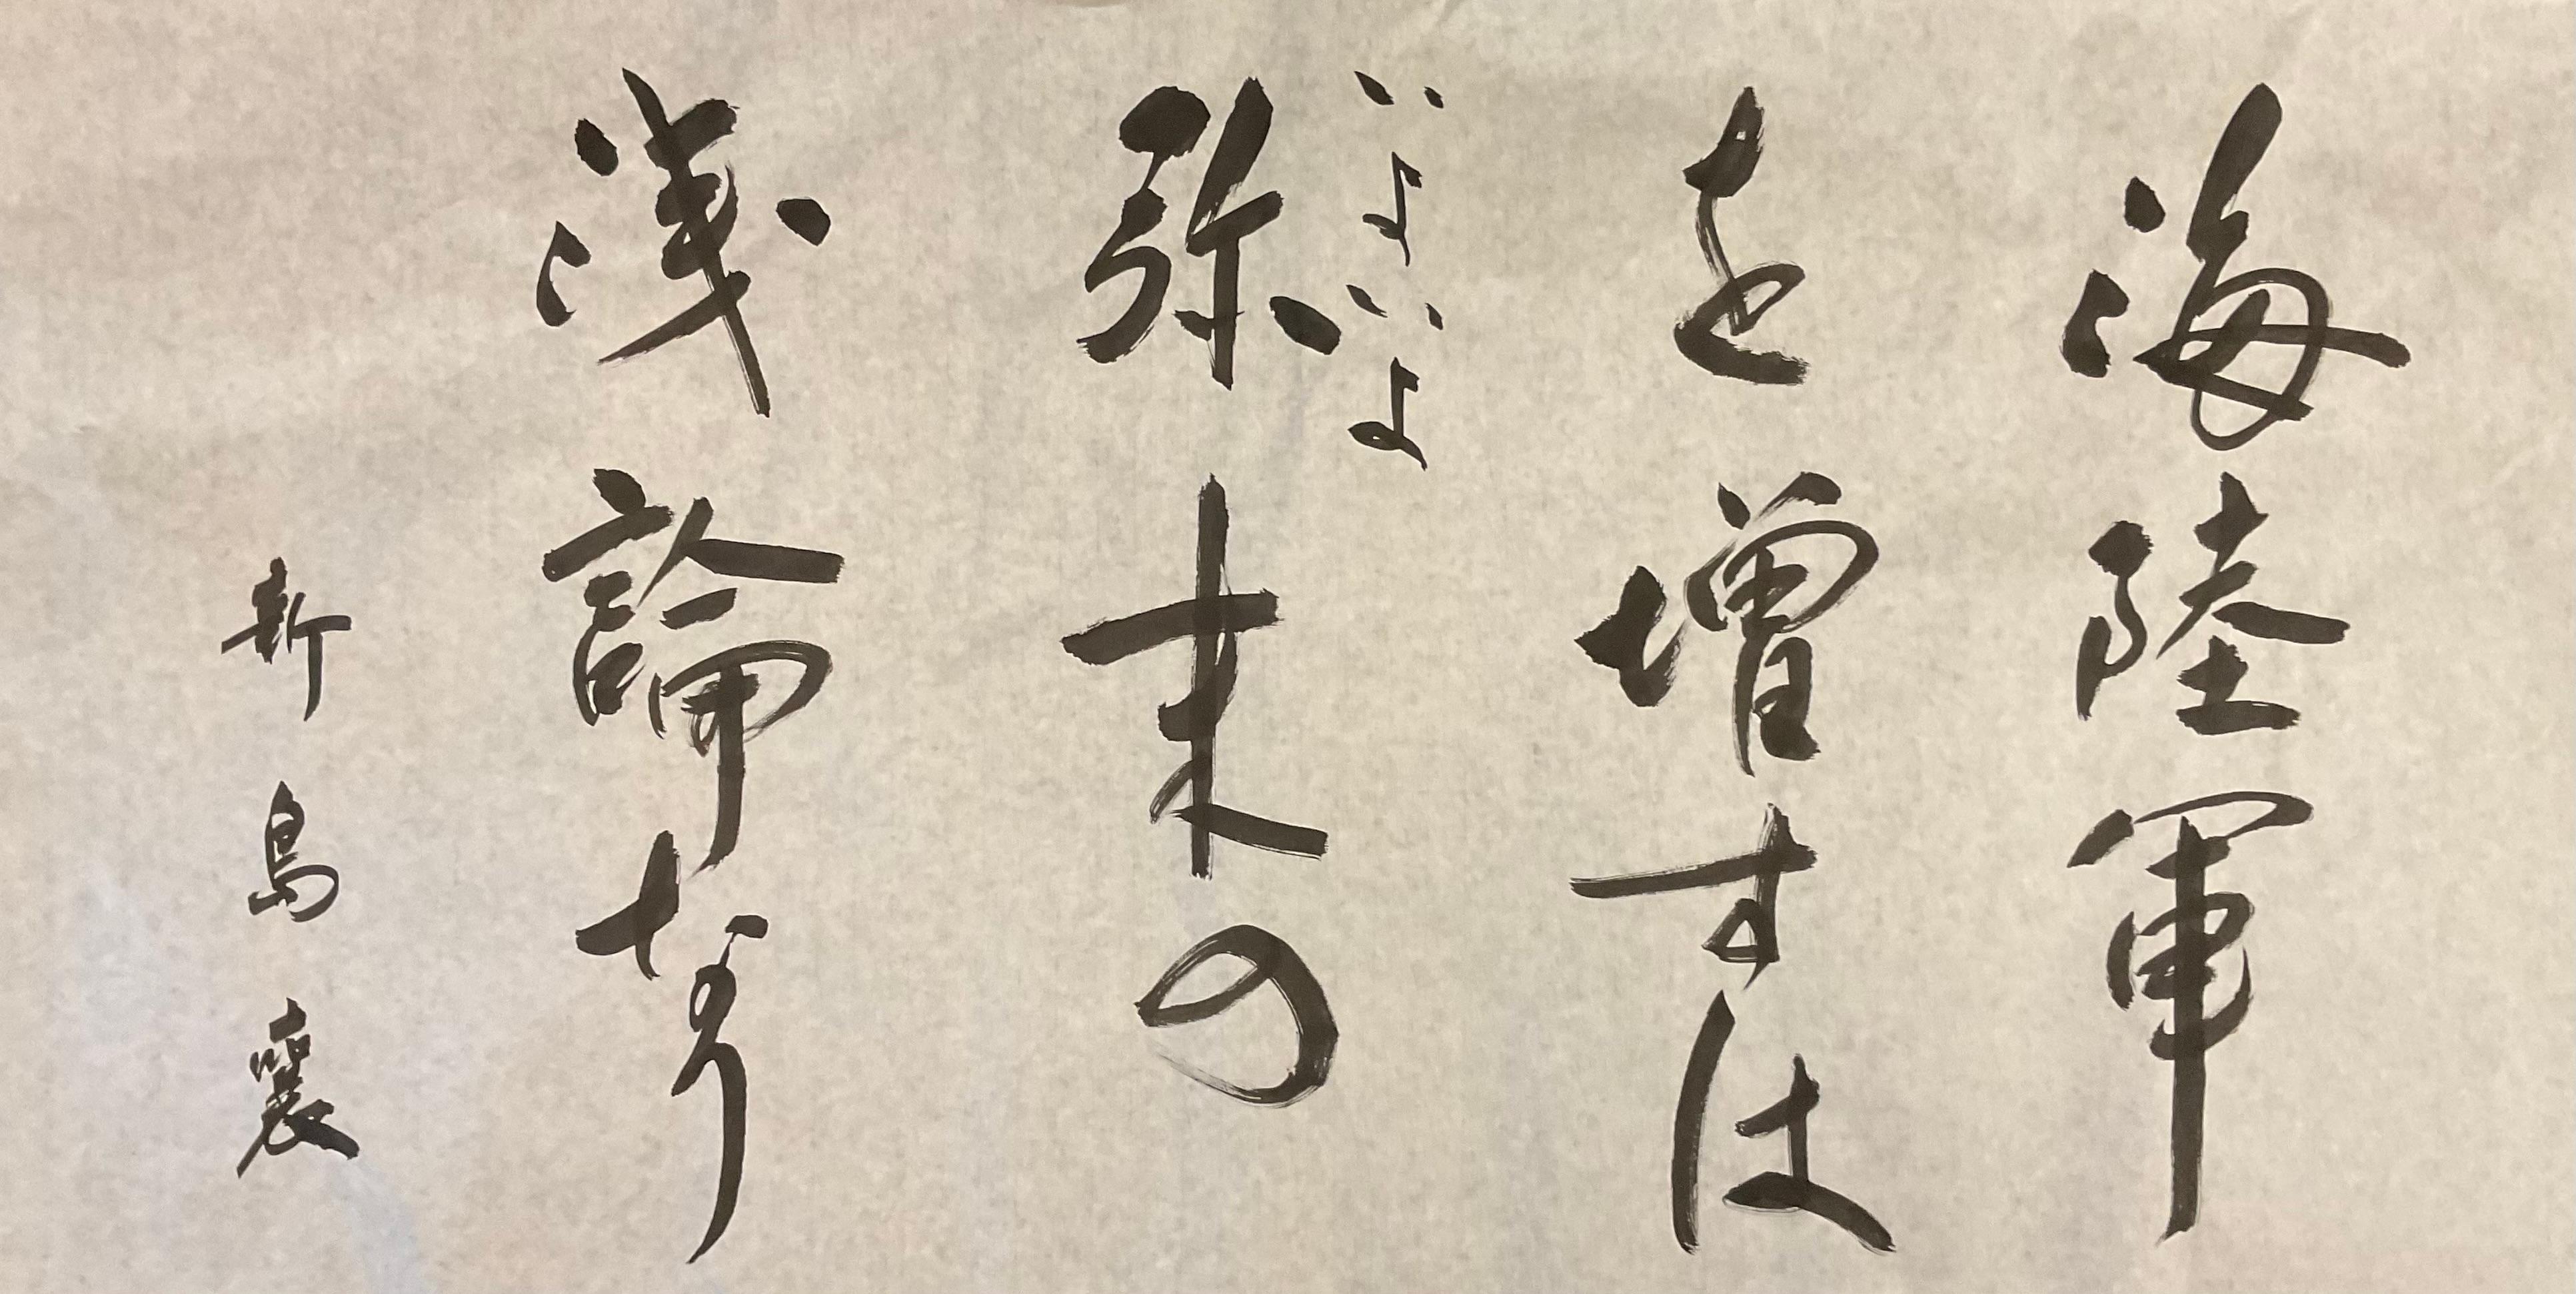 海陸軍
を増すは
弥末の
いよいよ
浅論なり
新島襄